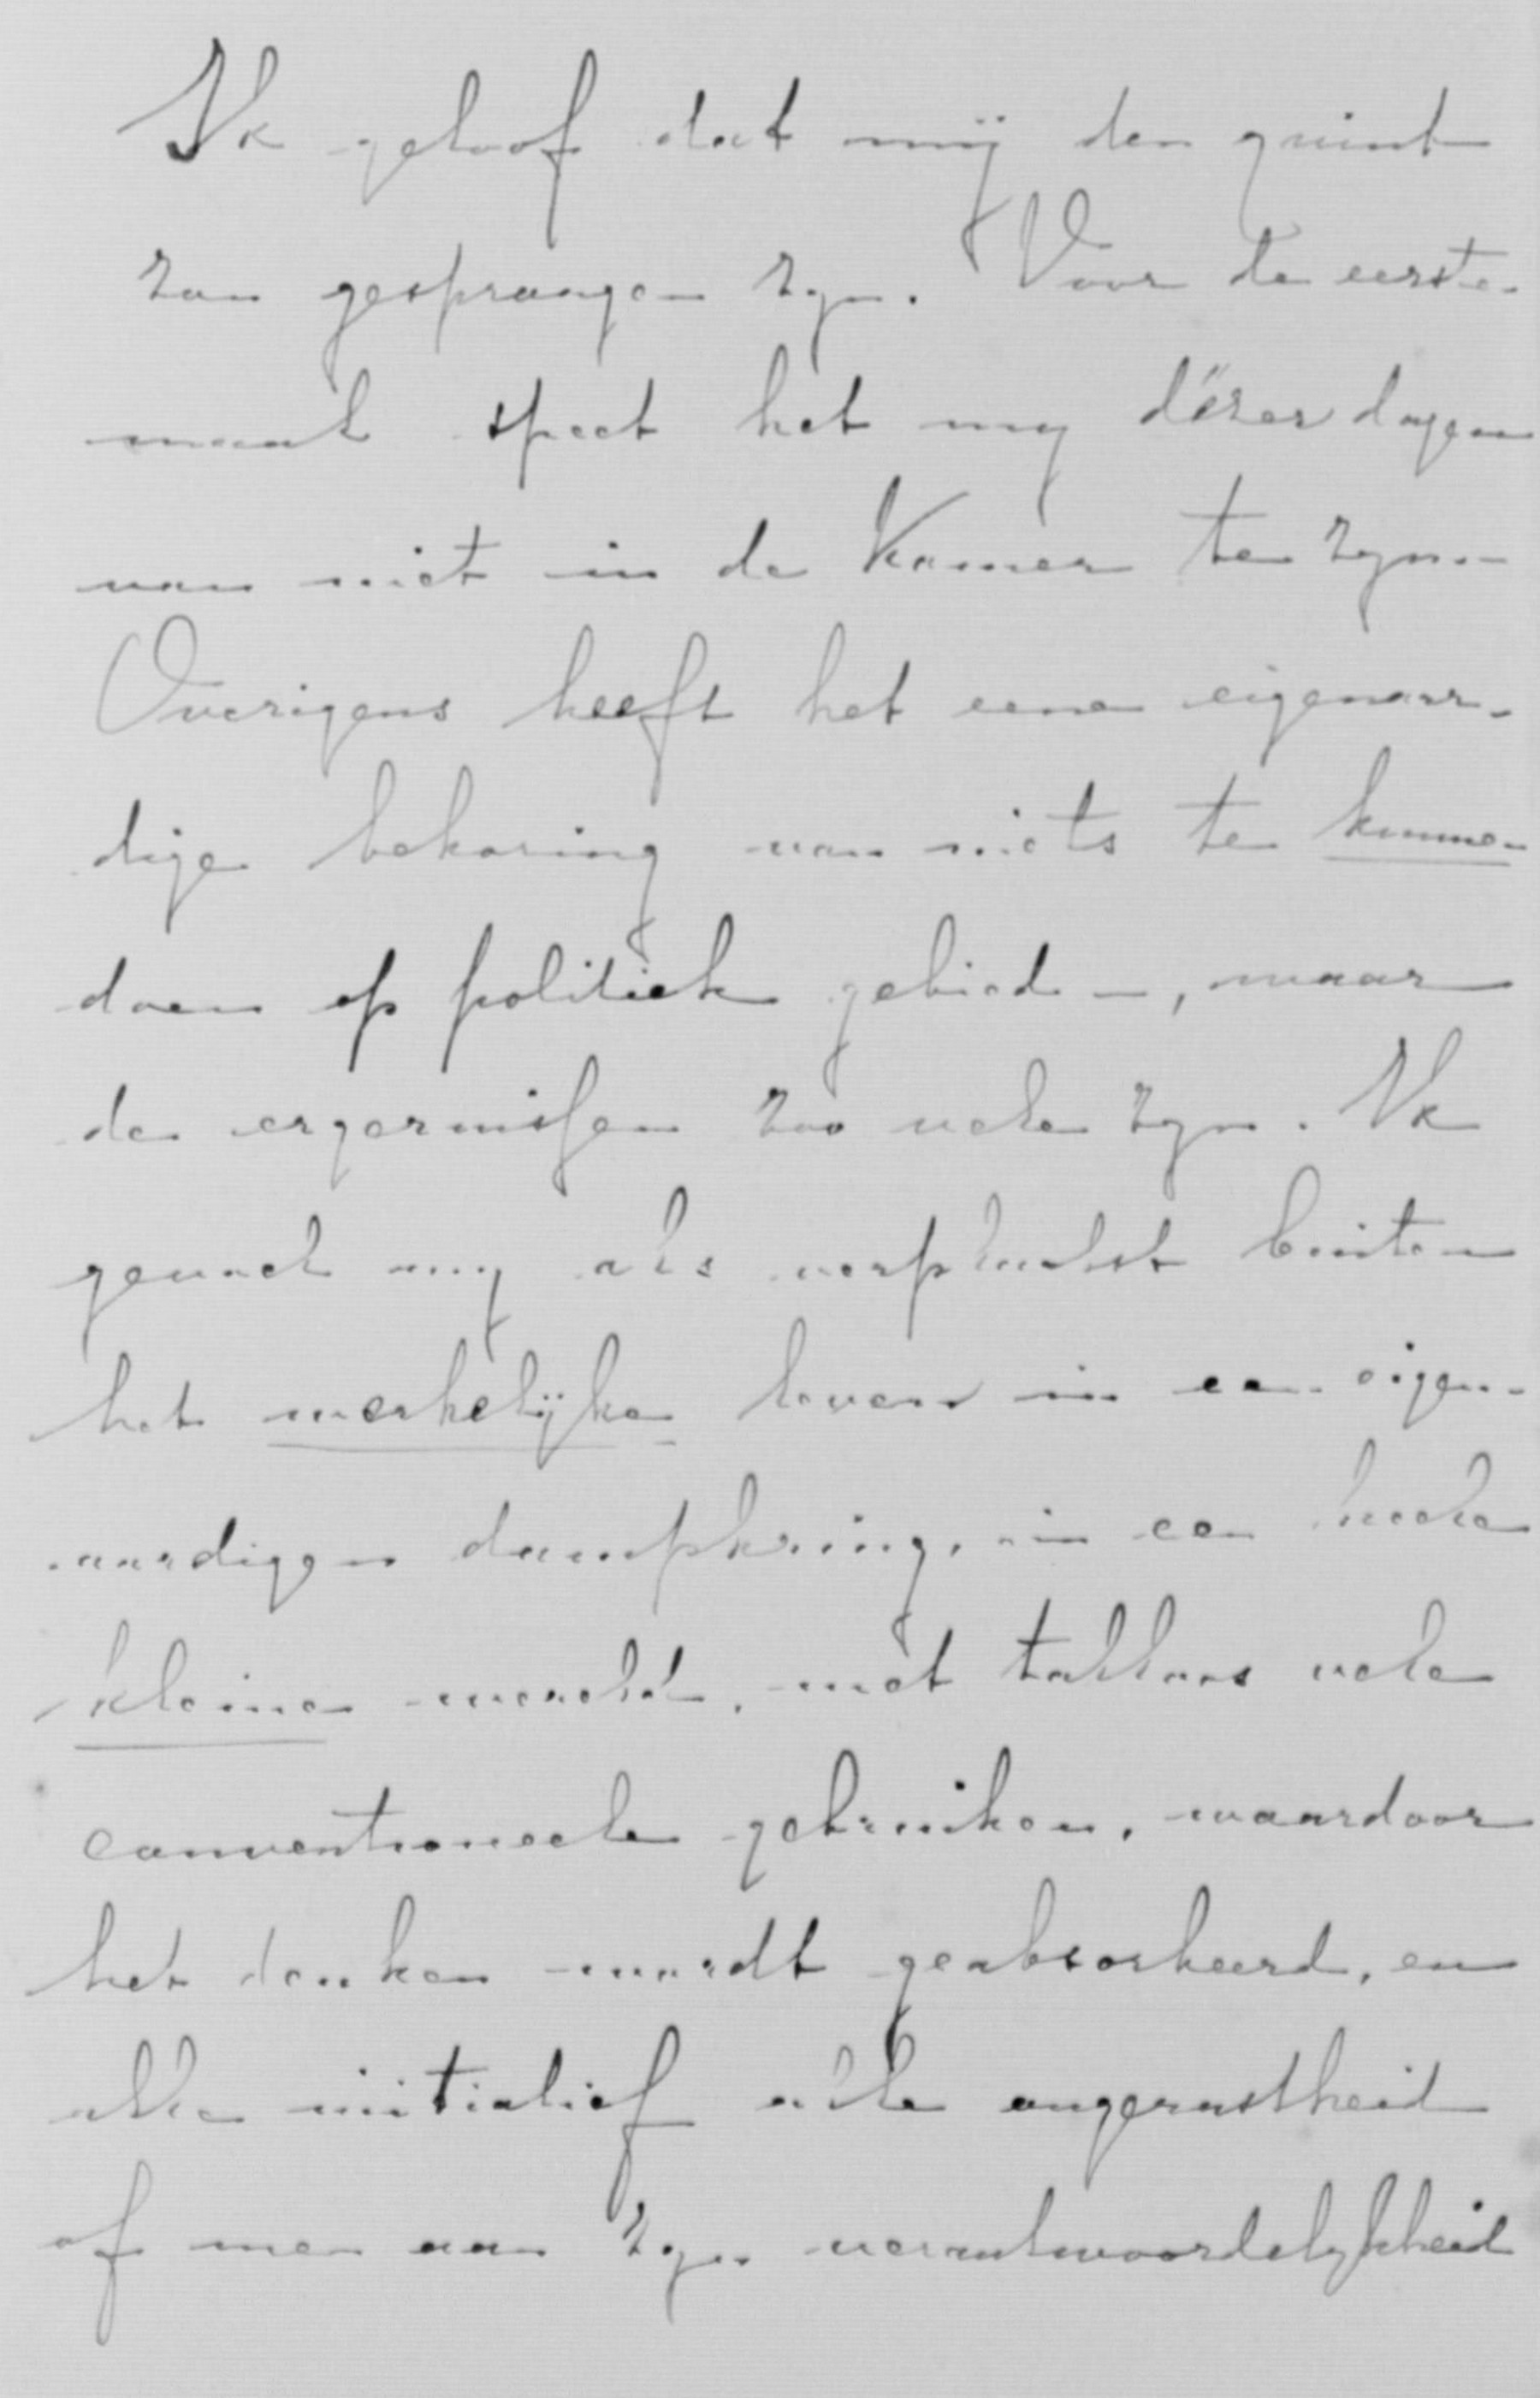 Ik geloof dat mij de quint
zou gesprongen zyn. Voor de eerste
maal speet het my dëzer dagen
van niet in de Kamer te zyn.
Overigens heeft het eene eigenaar-
dige bekoring van niets te kunnen
doen op politiek gebied –, waar
de ergernissen zoo vele zyn. Ik
gevoel my als verplaatst buiten
het werkelijke leven in een eigen-
aardigen dampkring, in een heele
kleine wereld, met talloos vele
conventioneele gebruiken, waardoor
het denken wordt geabsorbeerd, en
alle initiatief alle ongerustheid
of men aan zyn verantwoordelykheid